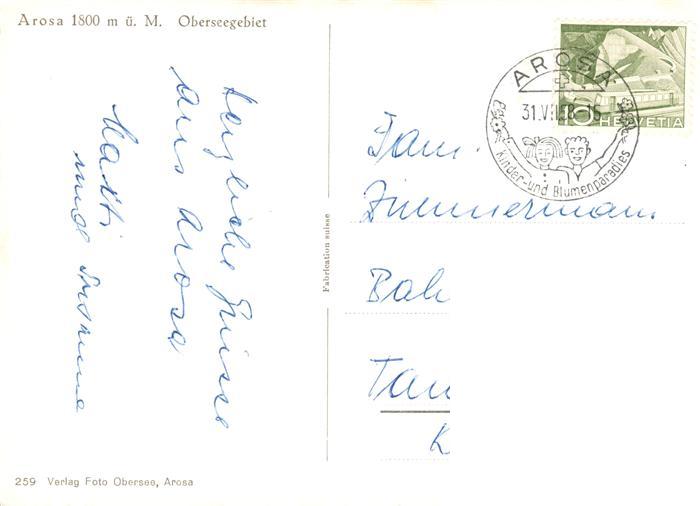 Arosa 1800 m ü. M. Oberseegebiet
Herzliche Grüsse
aus Arosa
Matti
und
Fabrication suisse
AROSA
31.VII.58
Kinder- und Blumenparadies
10
HELVETIA
Fam.
Zimmermann
Bah
Tan
K
259 Verlag Foto Obersee, Arosa